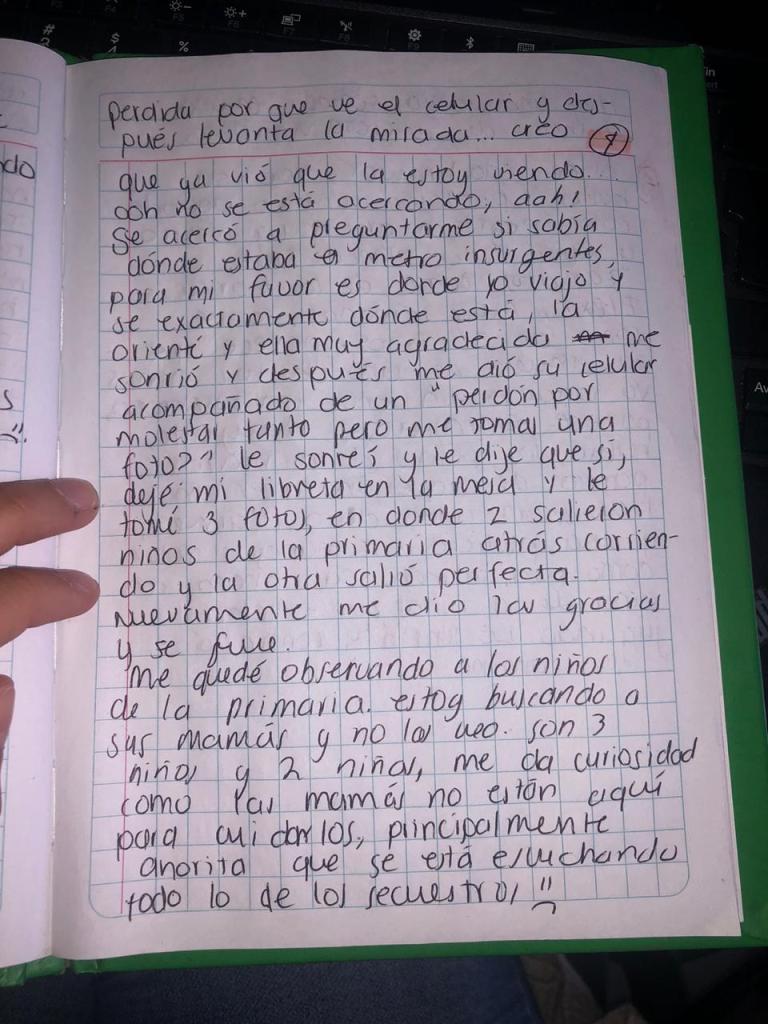 perdida por que ve el celular y des-
pués levanta la mirada... creo
9
que ya vió que la estoy viendo...
ooh no se está acercando, aah!
Se acercó a preguntarme si sabía
dónde estaba el metro insurgentes,
para mi favor es donde yo viajo y
se exactamente dónde está, la
orienté y ella muy agradecida me
sonrió y después me dió su celular
acompañado de un "perdón por
molestar tanto pero me tomas una
foto?" le sonreí y le dije que si,
dejé mi libreta en la mesa y le
tomé 3 fotos, en donde 2 salieron
niños de la primaria atrás corrien-
do y la otra salió perfecta.
Nuevamente me dio las gracias
y se fue.
me quedé observando a los niños
de la primaria. estoy buscando a
sus mamás y no las veo. son 3
niños y 2 niñas, me da curiosidad
como las mamás no están aquí
para cuidarlos, principalmente
ahorita que se está escuchando
todo lo de los secuestros